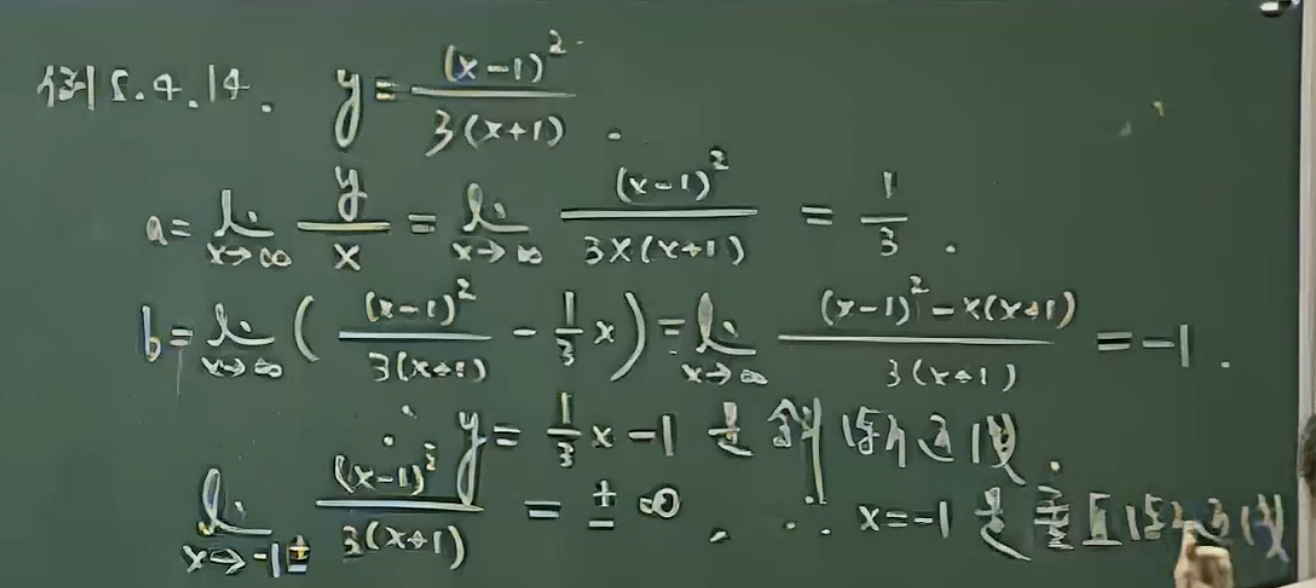 例5.4.14. y = (x-1)²/3(x+1).
a = lim x→∞ y/x = lim x→∞ (x-1)²/3x(x+1) = 1/3.
b = lim x→∞ ((x-1)²/3(x+1) - 1/3 x) = lim x→∞ (x-1)²-x(x+1)/3(x+1) = -1.
∴ y = 1/3 x - 1 是斜渐近线.
lim x→-1± (x-1)²/3(x+1) = ±∞. ∴ x=-1 是垂直渐近线